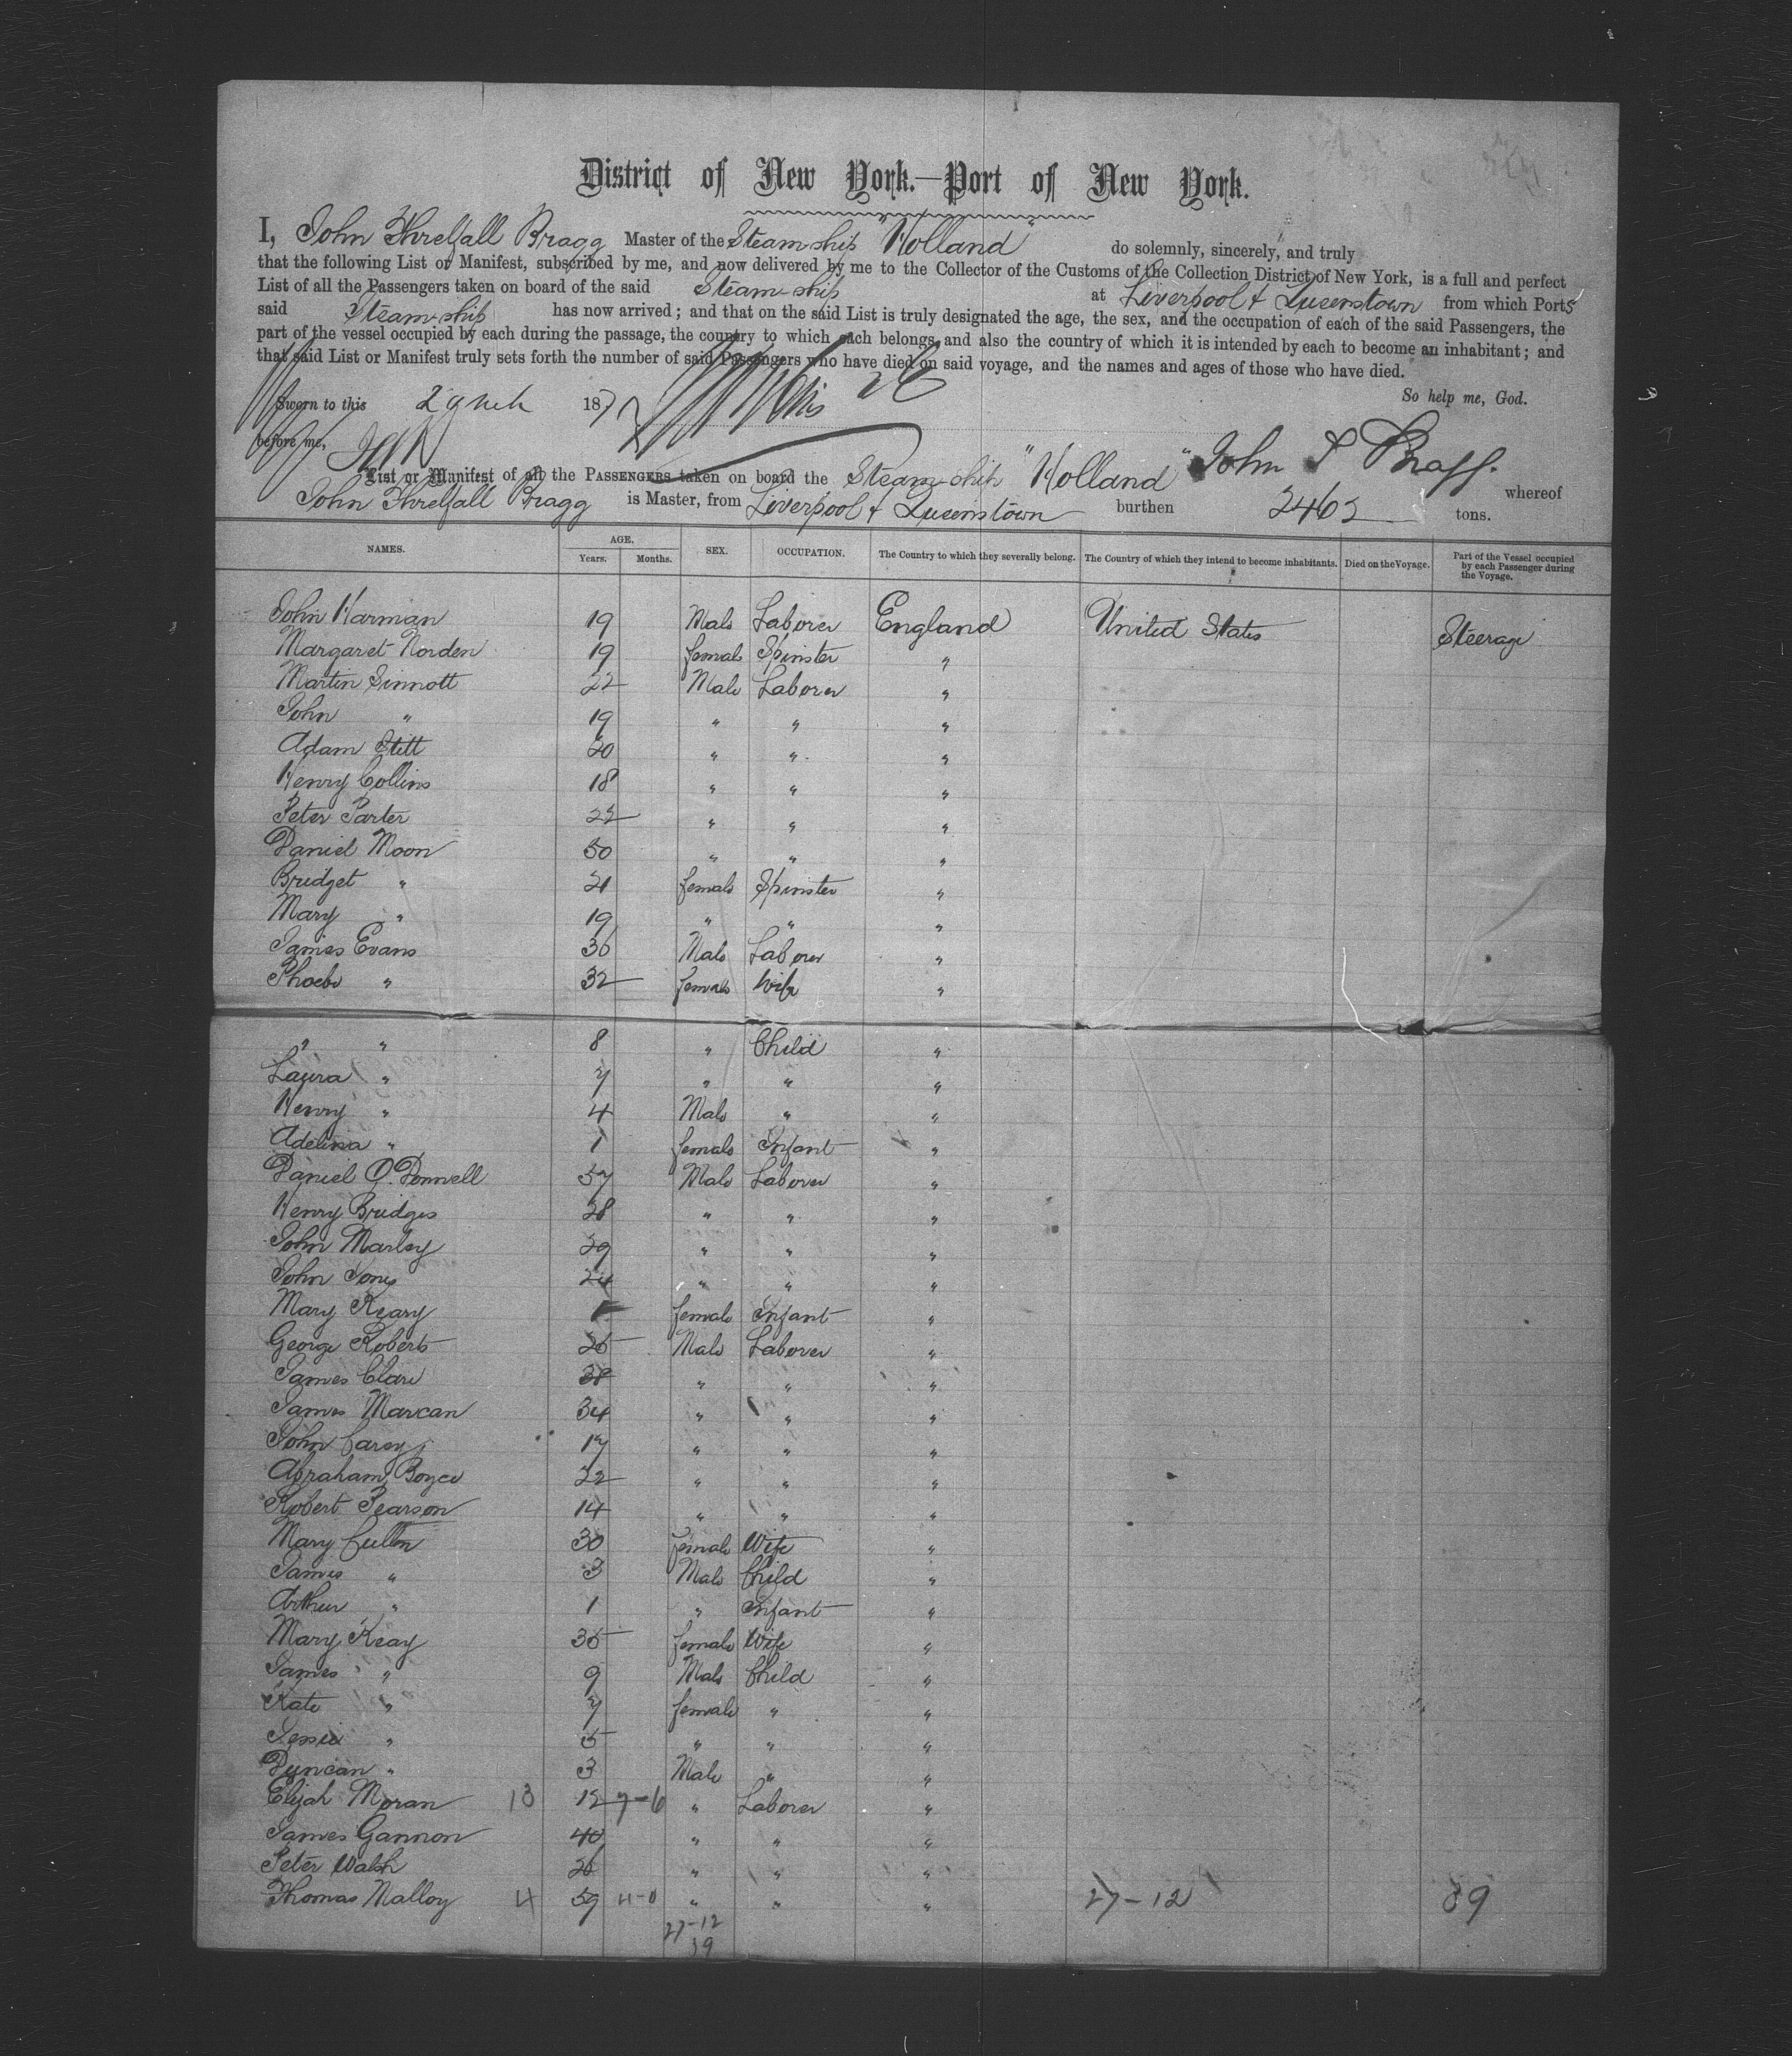 District of New York.—Port of New York.
I, John Threlfall Bragg Master of the Steam ship "Holland" do solemnly, sincerely, and truly
that the following List or Manifest, subscribed by me, and now delivered by me to the Collector of the Customs of the Collection District of New York, is a full and perfect
List of all the Passengers taken on board of the said Steam ship at Liverpool & Queenstown from which Ports
said Steam ship has now arrived; and that on the said List is truly designated the age, the sex, and the occupation of each of the said Passengers, the
part of the vessel occupied by each during the passage, the country to which each belongs, and also the country of which it is intended by each to become an inhabitant; and
that said List or Manifest truly sets forth the number of said Passengers who have died on said voyage, and the names and ages of those who have died.
So help me, God.
Sworn to this 29 187
before me,
John T Bragg.
List or Manifest of all the PASSENGERS taken on board the Steam ship "Holland" whereof
John Threlfall Bragg is Master, from Liverpool & Queenstown burthen 2462 tons.
NAMES. AGE. Years. Months. SEX. OCCUPATION. The Country to which they severally belong. The Country of which they intend to become inhabitants. Died on the Voyage. Part of the Vessel occupied by each Passenger during the Voyage.
John Harman 19 Male Laborer England United States Steerage
Margaret Norden 19 female Spinster "
Martin Sinnott 22 Male Laborer "
John " 19 " " "
Adam Stitt 20 " " "
Henry Collins 18 " " "
Peter Parter 22 " " "
Daniel Moon 50 " " "
Bridget " 21 female Spinster "
Mary " 19 " " "
James Evans 36 Male Laborer "
Phoebe " 32 female Wife "
" " 8 " Child "
Laura " 7 " " "
Henry " 4 Male " "
Adelina " 1 female Infant "
Daniel O'Donnell 37 Male Laborer "
Henry Bridges 28 " " "
John Marley 29 " " "
John Jones 24 " " "
Mary Keary 1 female Infant "
George Roberts 25 Male Laborer "
James Clare 38 " " "
James Marcan 34 " " "
John Carey 17 " " "
Abraham Boyce 22 " " "
Robert Pearson 14 " " "
Mary Cullen 30 female Wife "
James " 3 Male Child "
Arthur " 1 " Infant "
Mary Keay 35 female Wife "
James " 9 Male Child "
Kate " 7 female " "
Jessie " 5 " " "
Duncan " 3 Male " "
Elijah Moran 13 12 7-6 " Laborer "
James Gannon 40 " " "
Peter Walsh 26 " " "
Thomas Malloy 4 59 4-0 " " " 27-12 39
27-12
39